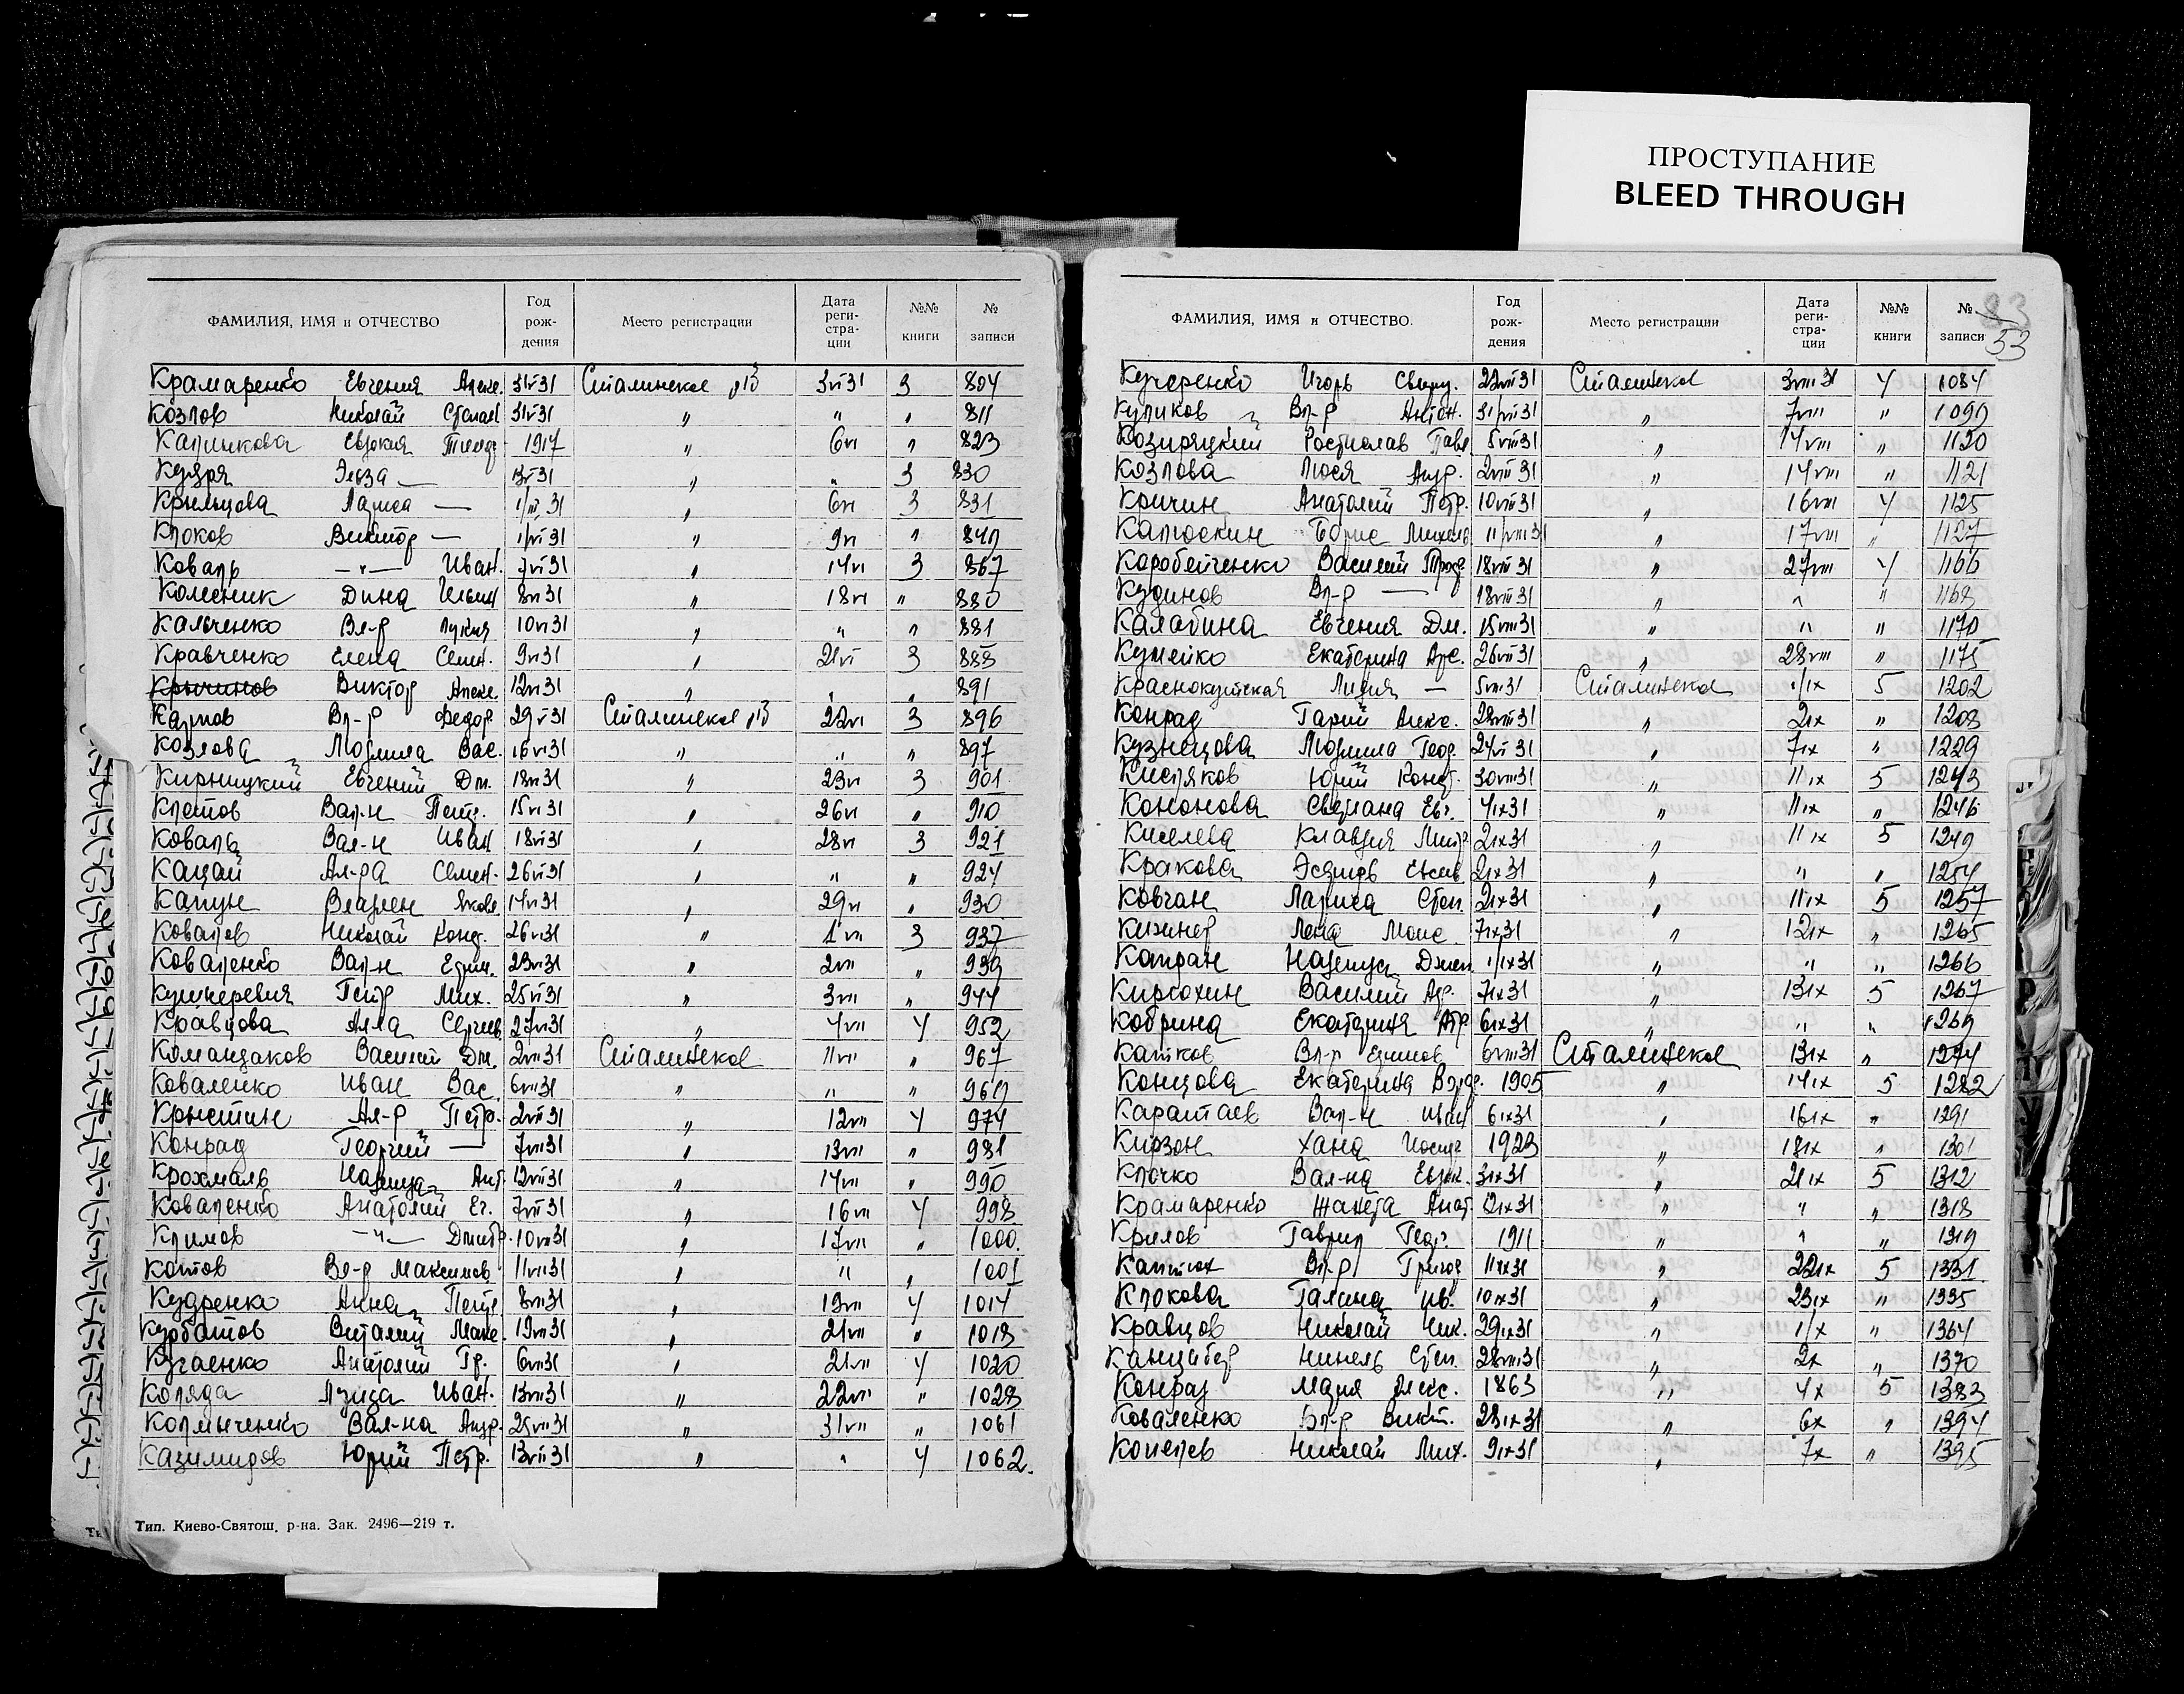 ПРОСТУПАНИЕ
BLEED THROUGH
ФАМИЛИЯ, ИМЯ и ОТЧЕСТВО Год рож-дения Место регистрации Дата реги-стра-ции №№ книги № записи
Крамаренко Евгения Алекс. 31v31 Сталинское 3vi31 3 804
Козлов Николай Степан 31v31 " " " 811
Калинкова Евдокия 1917 " 6vi " 823
Кузря Эльза — " " 3 830
Крыльцова Лариса — " 6vi 3 831
Клоков Виктор — 1/vi31 " 9vi " 840
Коваль —"— Иван. 7vi31 " 14vi 3 867
Колесник Дина 8vi31 " 18vi " 880
Кальченко Вл-р Лукич 10vi31 " " " 881
Кравченко Елена Семен. 9vi31 " 21vi 3 888
Крычинов Виктор Алекс. 12vi31 " " " 891
Карпов Вл-р Федор. 29v31 Сталинское 22vi 3 896
Козлова Людмила Вас. 16vi31 " " " 897
Кирницкий Евгений Дм. 18vi31 " 23vi 3 901
Клетов Вал-н Петр. 15vi31 " 26vi " 910
Коваль Вал-н Иван 18vi31 " 28vi 3 921
Кацай Ал-ра Семен. 26vi31 " " " 924
Капун Владлен Яковл 14vi31 " 29vi " 930
Ковалов Николай Конд. 26vi31 " 1vii 3 937
Коваленко Вал-н Ефим. 23vi31 " 2vii " 939
Кушнеревич Петр Мих. 25vi31 " 3vii " 944
Кравцова Алла Сергеев 27vi31 " 4vii 4 952
Командаков Василий Дм. 2vii31 Сталинское 11vii " 967
Коваленко Иван Вас. 6vii31 " " " 969
Крыстин Ал-р Петр. 2vii31 " 12vii 4 974
Конрад Георгий — 7vii31 " 13vii " 981
Крохмаль Надежда Ант 12vii31 " 14vii " 990
Коваленко Анатолий Ег. 7vii31 " 16vii 4 998
Климов —"— Дмитр. 10vii31 " 17vii " 1000.
Котов Вл-р Максимов 11vii31 " " " 1001
Кудренко Анна Петр 8vii31 " 19vii 4 1014
Курбатов Виталий Макс. 19vii31 " 21vii " 1018
Кугаенко Анатолий Гр. 6vii31 " 21vii 4 1020
Коляда Луиза Иван. 13vii31 " 22vii " 1028
Колмыченко Вал-на Андр. 25vii31 " 31vii " 1061
Казимиров Юрий Петр. 13vii31 " " 4 1062.
Тип. Киево-Святош. р-на. Зак. 2496—219 т.
83
53
ФАМИЛИЯ, ИМЯ и ОТЧЕСТВО. Год рож-дения Место регистрации Дата реги-стра-ции №№ книги № записи
Кучеренко Игорь 22vii31 Сталинское 3viii31 4 1084
Куликов Вл-р Антон. 31/vii31 " 7viii " 1090
Козиряцкий Ростислав Павл 5viii31 " 14viii " 1120
Козлова Люся Андр. 2viii31 " 14viii " 1121
Кричин Анатолий Петр. 10viii31 " 16viii 4 1125
Калюскин Борис Михель 11/viii31 " 17viii " 1127
Коробейченко Василий 18viii31 " 27viii 4 1166
Кудинов Вл-р — 18viii31 " " " 1168
Калабина Евгения Дм. 15viii31 " " " 1170
Кулейко Екатерина 26vii31 " 28viii " 1175
Краснокутская Лидия — 5viii31 Сталинское 1/ix 5 1202
Конрад Гарий Алекс. 28viii31 " 2ix " 1208
Кузнецова Людмила Геор. " 7ix " 1229
Кисляков Юрий Конст. 30viii31 " 11ix 5 1243
Кононова Светлана Евг. 4ix31 " 11ix " 1246
Киселева Клавдия Митр 2ix31 " 11ix 5 1249
Кракова Эсфирь 2ix31 " " " 1254
Ковган Лариса Степ. 2ix31 " 11ix 5 1257
Кижнер Лена Моис. 7ix31 " 12ix " 1265
Капран Надежда 1/ix31 " " " 1266
Кирюхин Василий 7ix31 " 13ix 5 1267
Кобрина Екатерина 6ix31 " " " 1269
Катков Вл-р Ефимов 6viii31 Сталинское 13ix " 1274
Концова Екатерина 1905 " 14ix 5 1282
Каратаев Вал-н Иван 6ix31 " 16ix " 1291
Кирзон Хана 1923 " 18ix " 1301
Клочко Вал-на 3ix31 " 21ix 5 1312
Крамаренко Жанета Анат " " " 1318
Крилов Гаврил Геор. 1911 " " " 1319
Вл-р Григор 11ix31 " 22ix 5 1331
Клокова Галина Ив. 10ix31 " 23ix " 1335
Кравцов Николай Ник. 29ix31 " 1/x " 1364
Нинель Степ. 28viii31 " 2x " 1370
Конрад Мария Алекс. 1863 " 4x 5 1383
Коваленко Вл-р Викт. 28ix31 " 6x " 1394
Копелев Николай Мих. 9ix31 " 7x " 1395